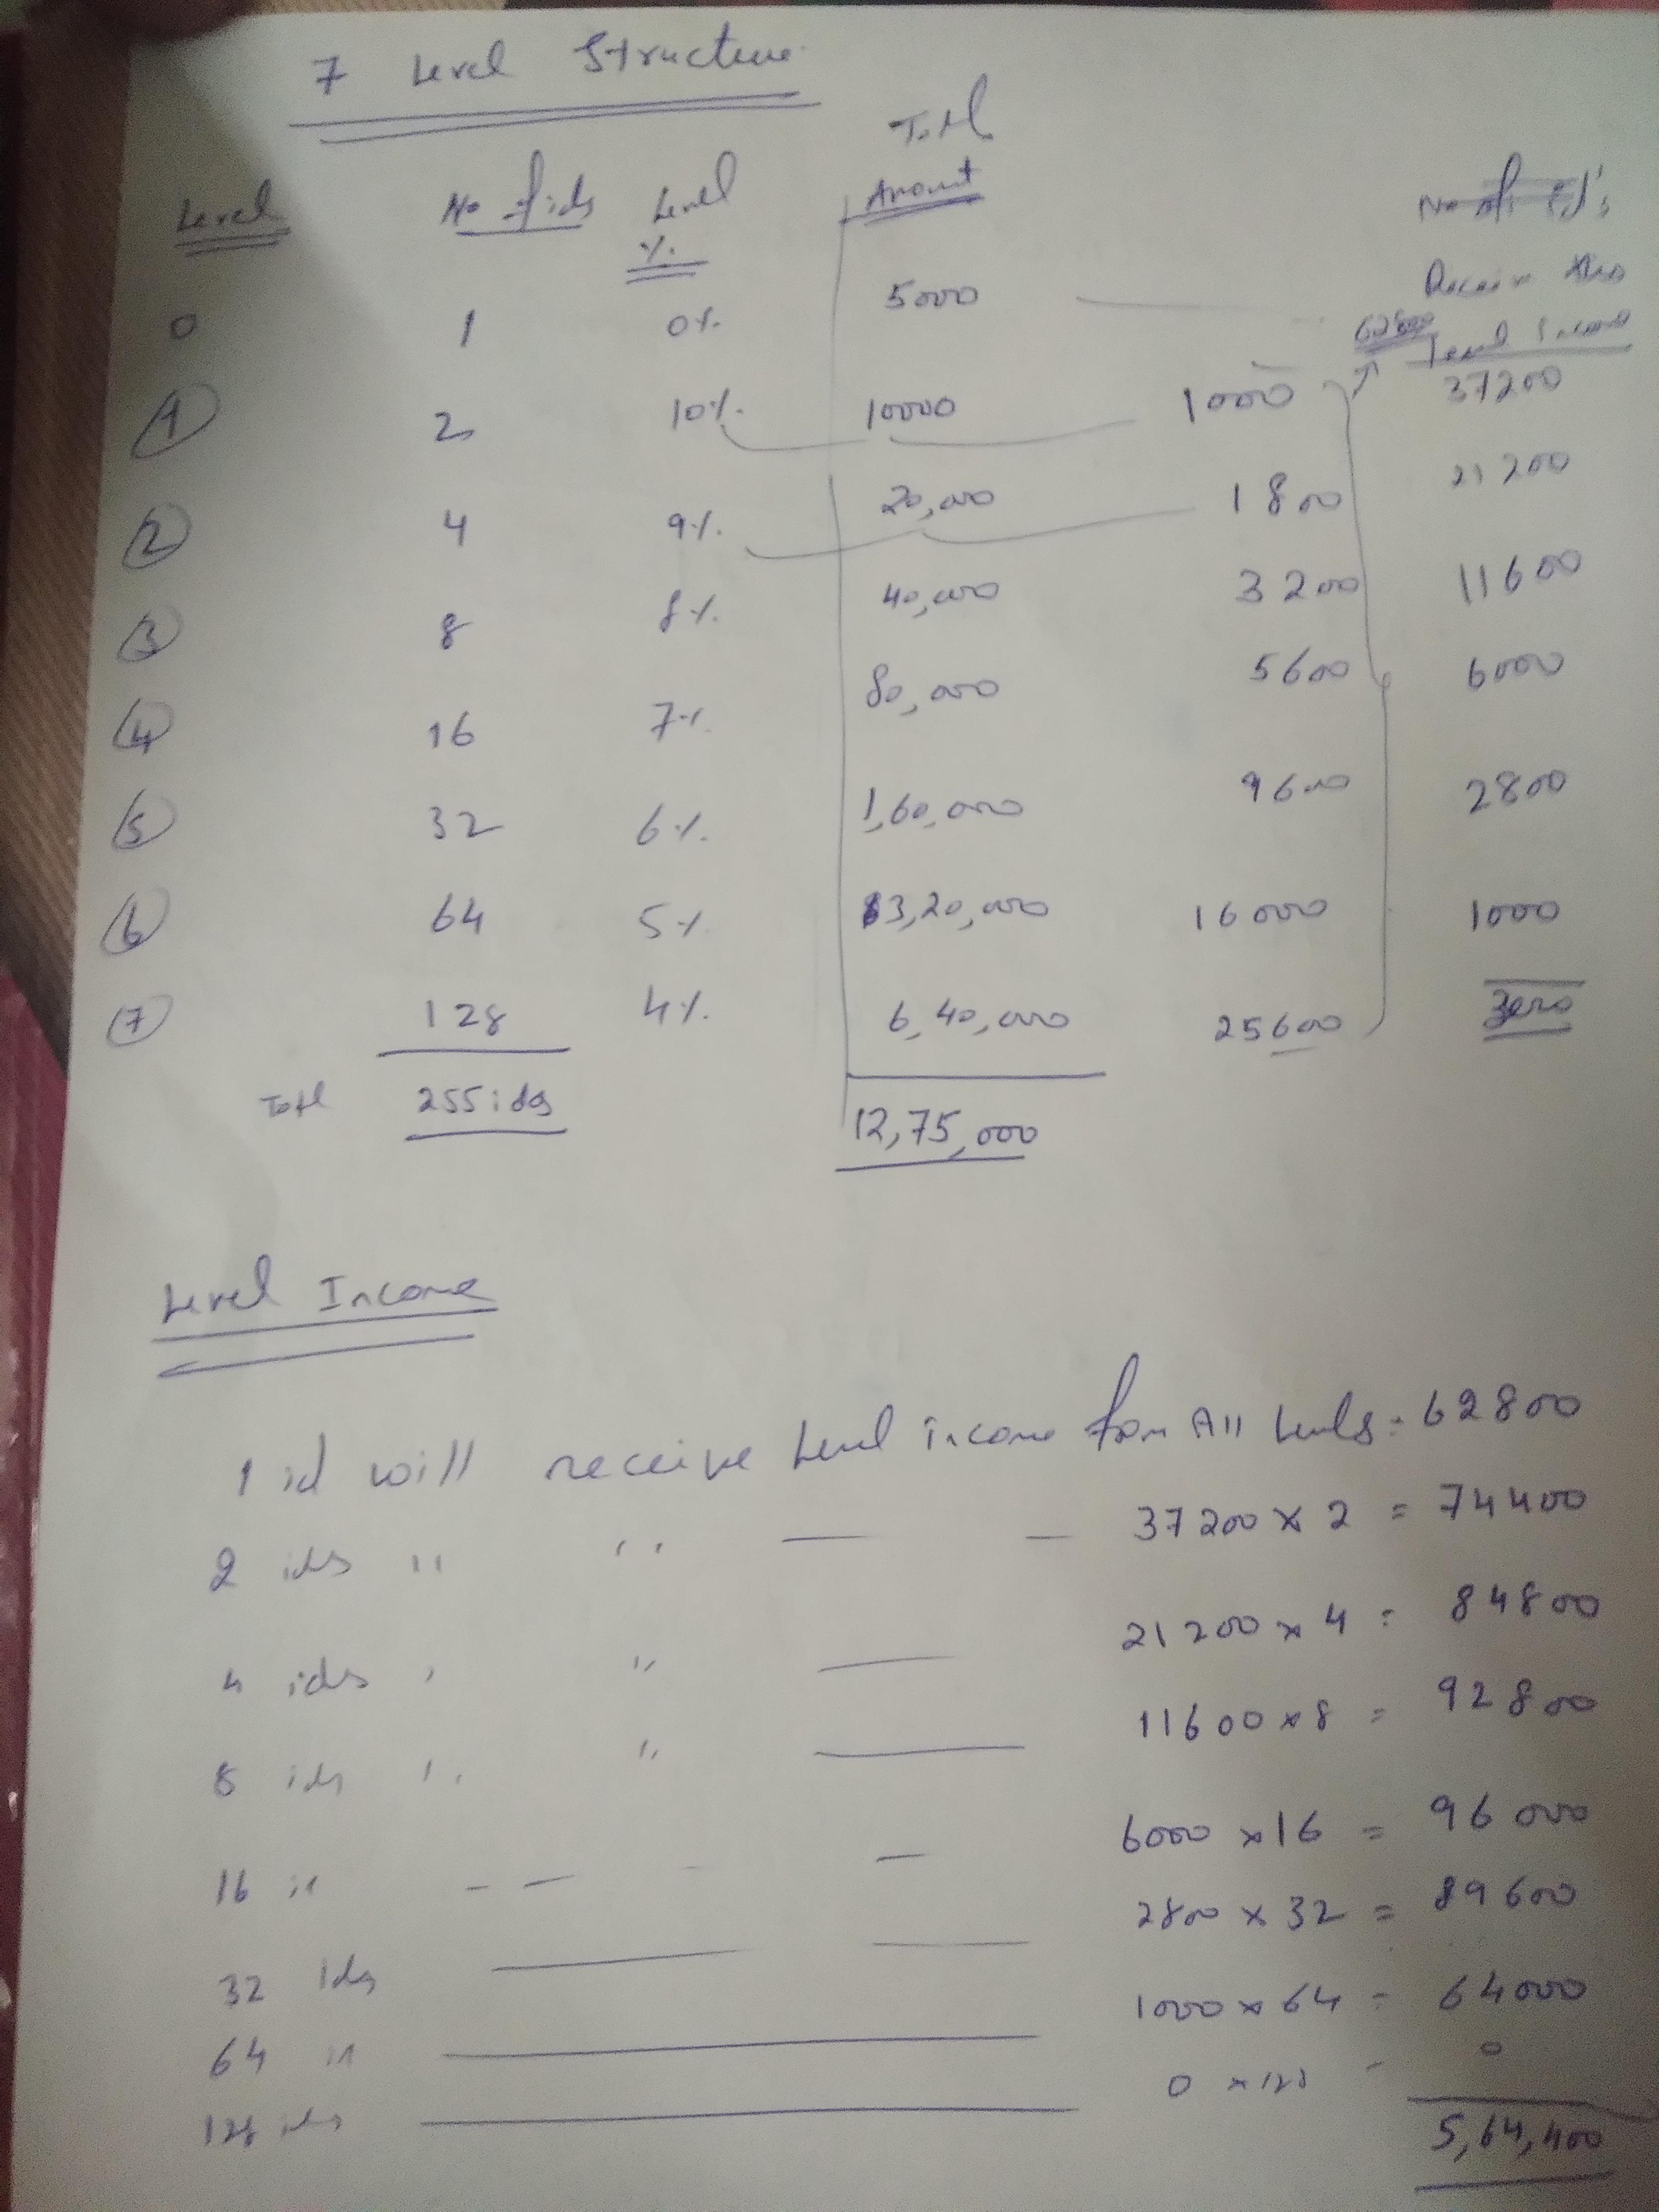 7 Level Structure
Level No of ids Level % Total Amount No of Id's Receive this Level Income
0 1 0% 5000 62800
1 2 10% 10000 1000 37200
2 4 9% 20,000 1800 21200
3 8 8% 40,000 3200 11600
4 16 7% 80,000 5600 6000
5 32 6% 1,60,000 9600 2800
6 64 5% 3,20,000 16000 1000
7 128 4% 6,40,000 25600 Zero
Total 255 ids 12,75,000
Level Income
1 id will receive Level income from All Levels = 62800
2 ids " " — — 37200 x 2 = 74400
4 ids " " — 21200 x 4 = 84800
8 ids " " — 11600 x 8 = 92800
16 " — — — 6000 x 16 = 96000
32 Ids — — 2800 x 32 = 89600
64 " — 1000 x 64 = 64000
128 ids — 0 x 128 - 0
5,64,400